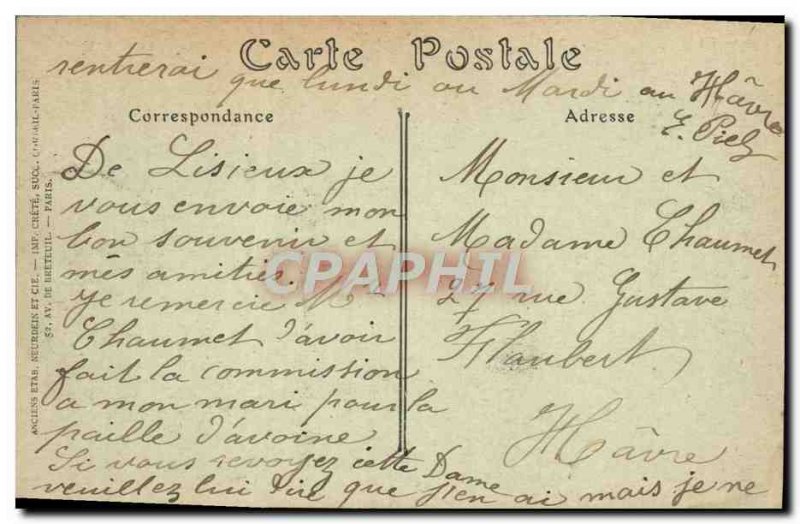 Carte Postale
rentrerai que lundi ou Mardi au Hâvre
E. Piel
Correspondance
Adresse
De Lisieux je
vous envoie mon
bon souvenir et
mes amitiés.
Je remercie Me
Chaumet d'avoir
fait la commission
a mon mari pour la
paille d'avoine
Si vous revoyez cette Dame
veuillez lui dire que j'en ai mais je ne
Monsieur et
Madame Chaumet
27 rue Gustave
Flaubert
Hâvre
ANCIENS ETAB. NEURDEIN ET CIE. — IMP. CRÉTÉ, SUCC. CORBEIL-PARIS
52, AV. DE BRETEUIL. — PARIS.
CPAPHIL